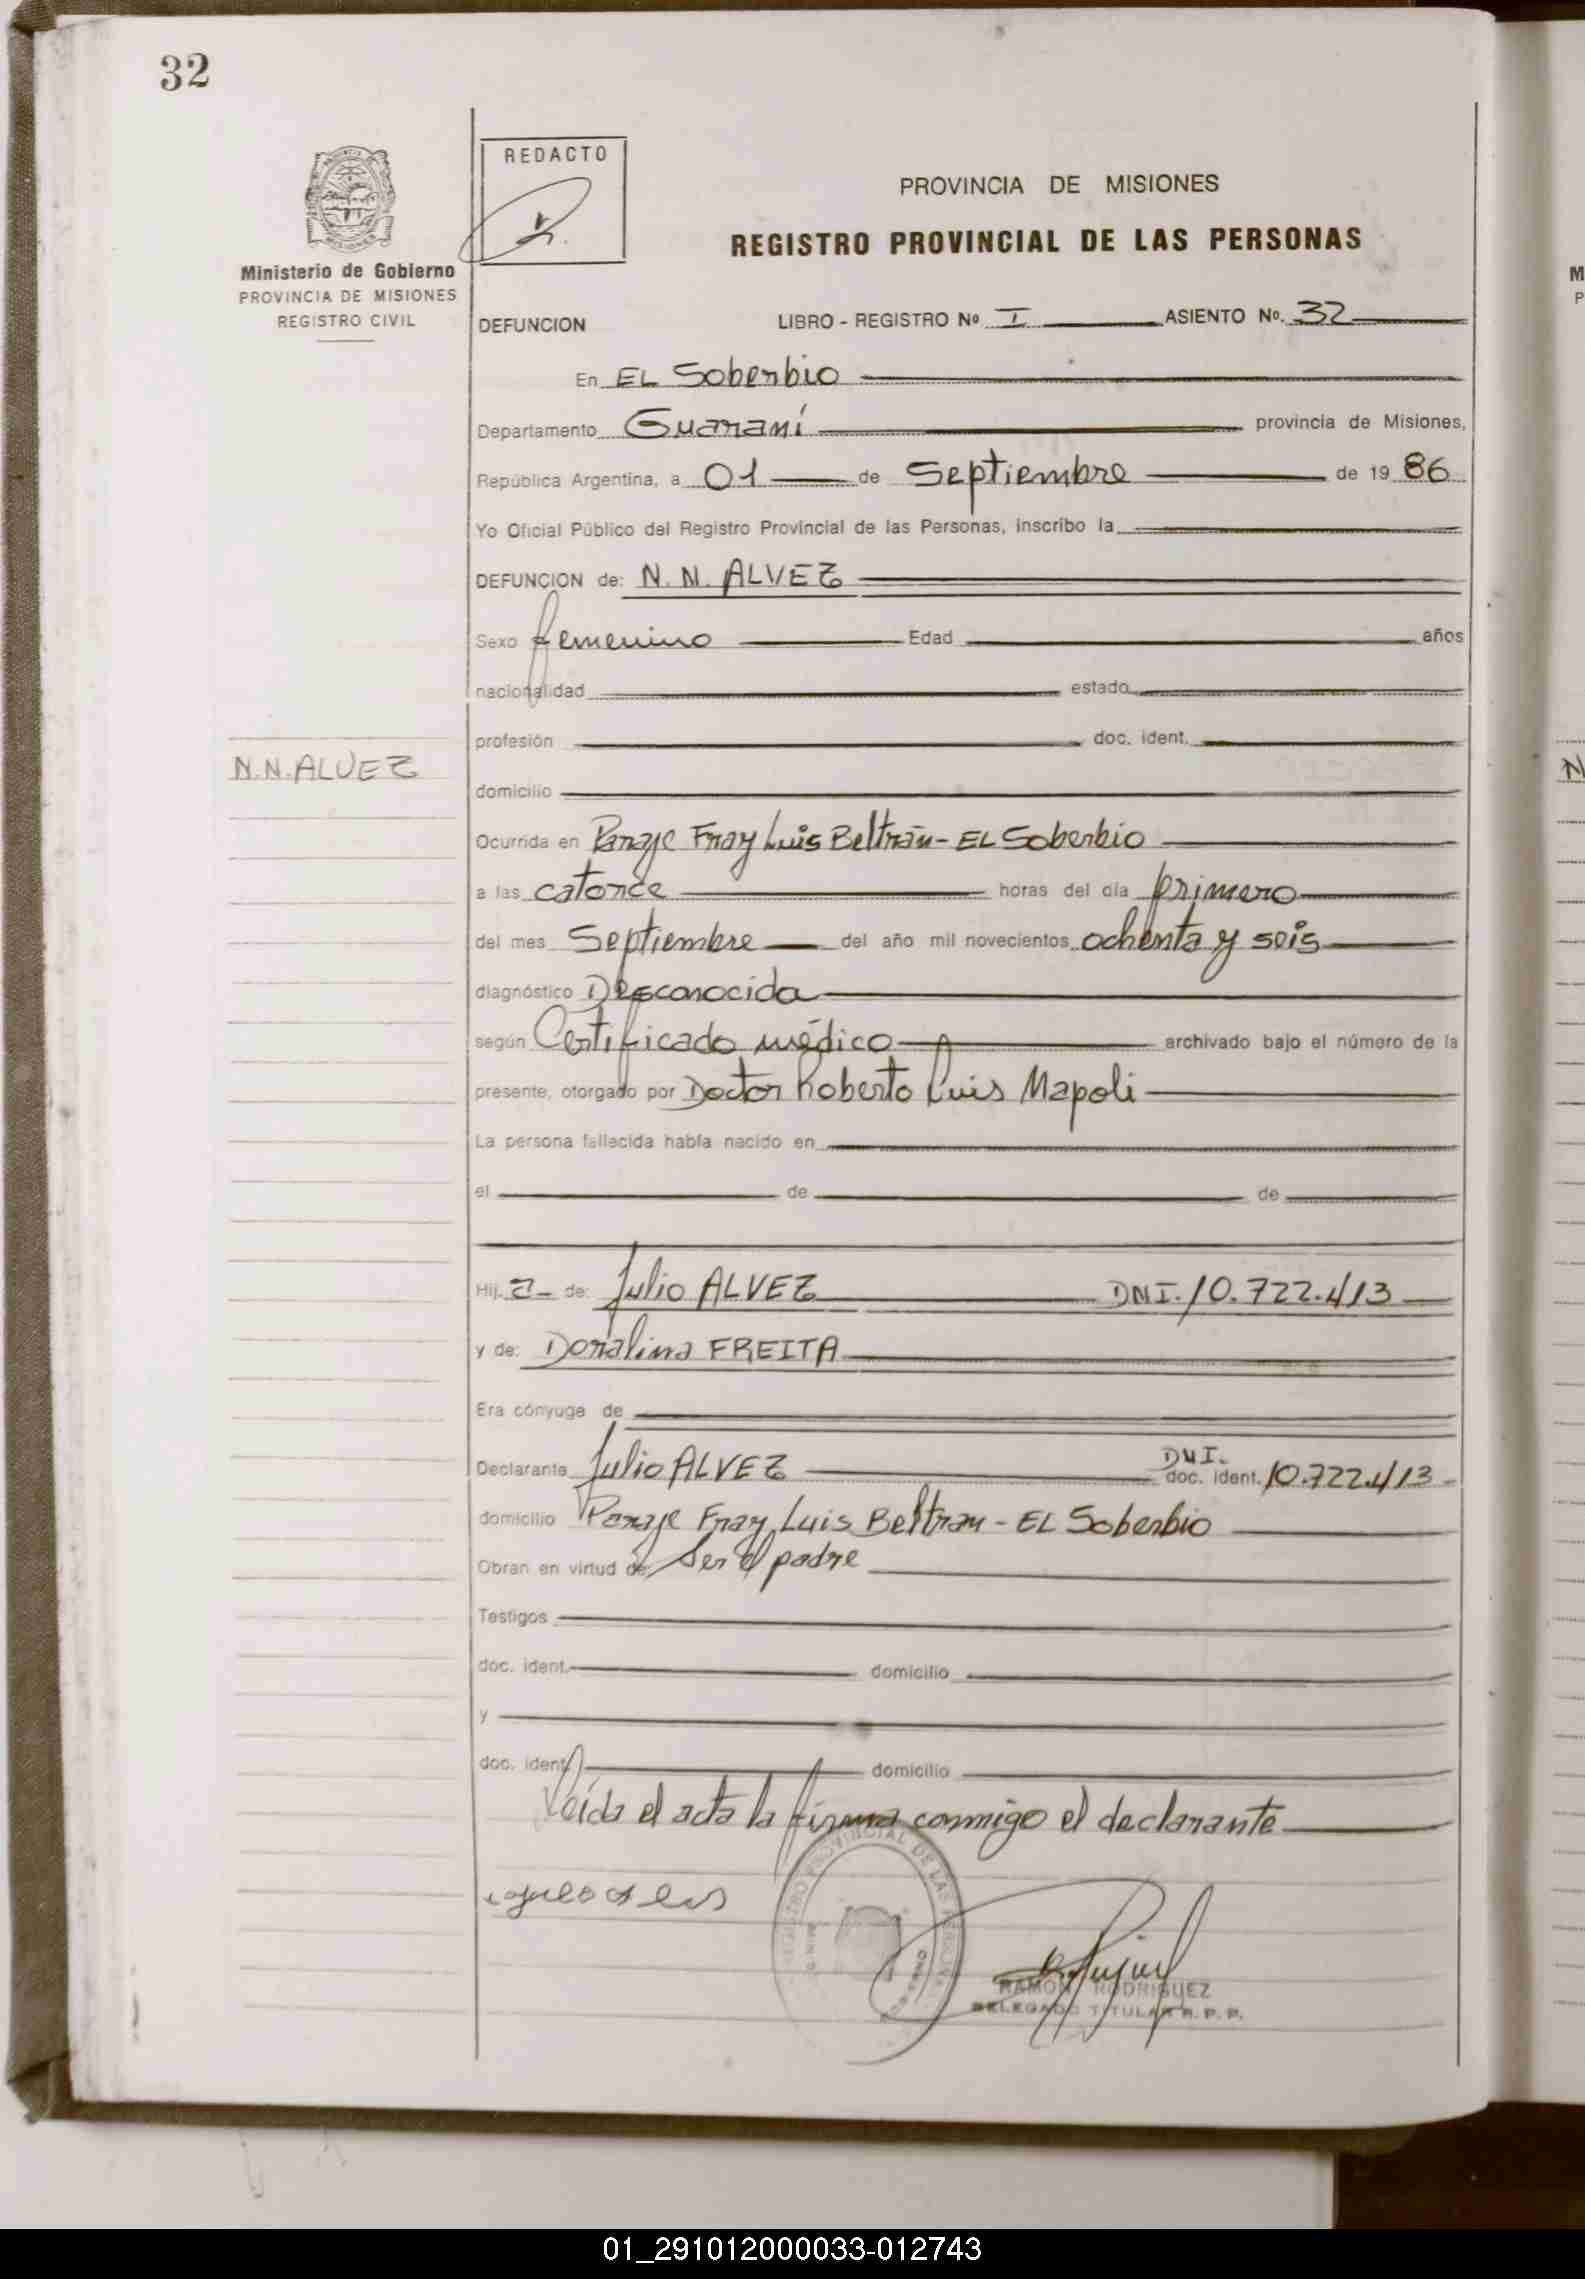 32
REDACTO
PROVINCIA DE MISIONES
REGISTRO PROVINCIAL DE LAS PERSONAS
Ministerio de Gobierno
PROVINCIA DE MISIONES
REGISTRO CIVIL
DEFUNCION LIBRO - REGISTRO Nº I ASIENTO Nº. 32
En EL Soberbio
Departamento Guaraní provincia de Misiones,
República Argentina, a 01 de Septiembre de 19 86
Yo Oficial Público del Registro Provincial de las Personas, inscribo la
DEFUNCION de: N. N. ALVEZ
Sexo femenino Edad años
nacionalidad estado
profesión doc. ident.
N.N. ALVEZ
domicilio
Ocurrida en Paraje Fray Luis Beltrán - EL Soberbio
a las catorce horas del día primero
del mes Septiembre del año mil novecientos ochenta y seis
diagnóstico Desconocida
según Certificado médico archivado bajo el número de la
presente, otorgado por Doctor Roberto Luis Mapoli
La persona fallecida había nacido en
el de de
Hij a de: Julio ALVEZ DNI. 10.722.413
y de: Doralina FREITA
Era cónyuge de
Declarante Julio ALVEZ DNI. doc. ident. 10.722.413
domicilio Paraje Fray Luis Beltran - EL Soberbio
Obran en virtud de Ser el padre
Testigos
doc. ident. domicilio
y
doc. ident. domicilio
Leída el acta la firma conmigo el declarante
REGISTRO PROVINCIAL DE LAS PERSONAS
RAMON RODRIGUEZ
DELEGADO TITULAR R. P. P.
01_291012000033-012743